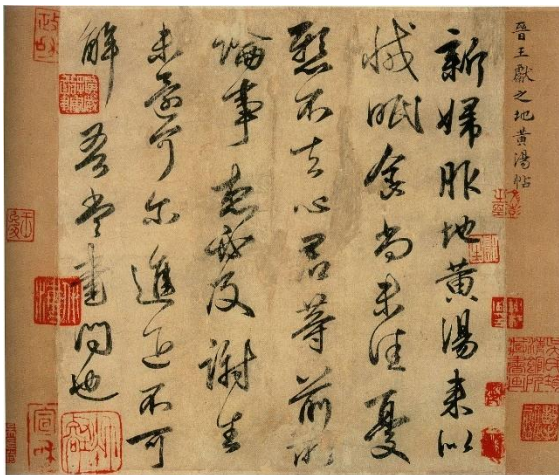 晉王獻之地黃湯帖
新婦服地黃湯來似
減眠食尚未佳憂
懸不去心君等前所
論事想必及謝生
未還何尔進退不可
解吾當書問也